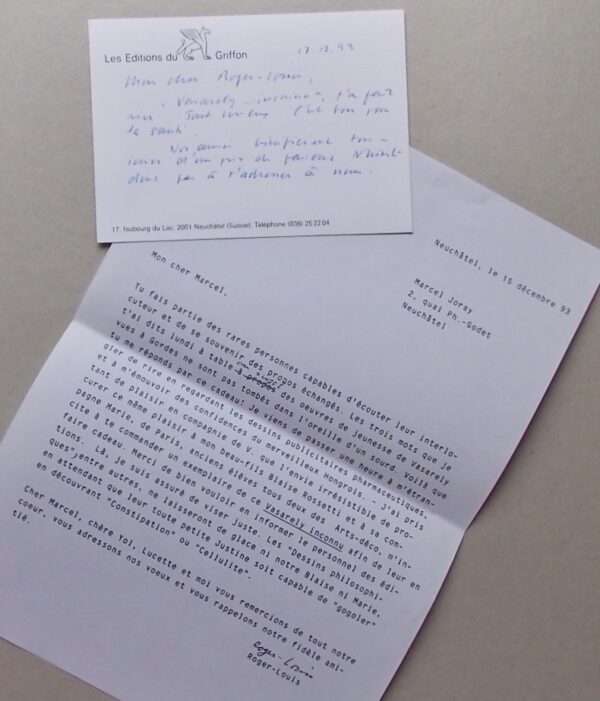 Les Editions du Griffon
17.12.93
Mon cher Roger-Louis,
"Vasarely inconnu", t'a fait
rire. Tant mieux. C'est bon pour
la santé.
Nos amis bénéficient tou-
jours d'un prix de faveur. N'hésite
donc pas à t'adresser à nous.
17, faubourg du Lac, 2001 Neuchâtel (Suisse), Téléphone (038) 25 22 04
Neuchâtel, le 15 décembre 93
Marcel Joray
2, quai Ph.-Godet
Neuchâtel
Mon cher Marcel,
Tu fais partie des rares personnes capables d'écouter leur interlo-
cuteur et de se souvenir des propos échangés. Les trois mots que je
t'ai dits lundi à table à propos des oeuvres de jeunesse de Vasarely
vues à Gordes ne sont pas tombés dans l'oreille d'un sourd. Voilà que
tu me réponds par ce cadeau! Je viens de passer une heure à m'étran-
gler de rire en regardant les dessins publicitaires pharmaceutiques,
et à m'émouvoir des confidences du merveilleux Hongrois. - J'ai pris
tant de plaisir en compagnie de V. que l'envie irrésistible de pro-
curer ce même plaisir à mon beau-fils Blaise Rossetti et à sa com-
pagne Marie, de Paris, anciens élèves tous deux des Arts-déco, m'in-
cite à te commander un exemplaire de ce Vasarely inconnu afin de leur en
faire cadeau. Merci de bien vouloir en informer le personnel des édi-
tions. Là, je suis assuré de viser juste. Les "Dessins philosophi-
ques", entre autres, ne laisseront de glace ni notre Blaise ni Marie,
en attendant que leur toute petite Justine soit capable de "gogoler"
en découvrant "Constipation" ou "Cellulite".
Cher Marcel, chère Yol, Lucette et moi vous remercions de tout notre
coeur, vous adressons nos voeux et vous rappelons notre fidèle ami-
tié.
Roger-Louis
Roger-Louis